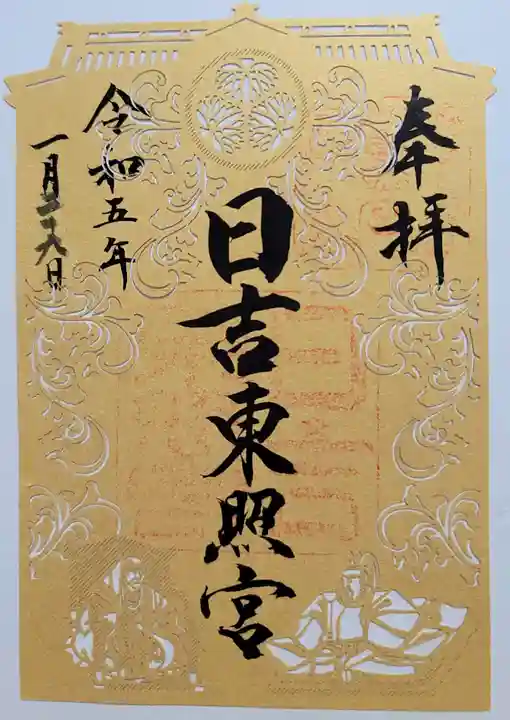 奉拝
日吉東照宮
令和五年
一月二十八日